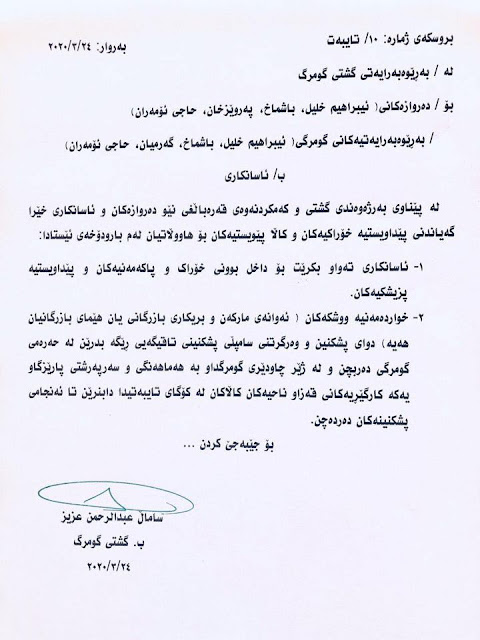 بروسکەی ژمارە: ١٠/ تایبەت
بەروار: ٢٠٢٠/٣/٢٤
لە / بەڕێوەبەرایەتی گشتی گومرگ
بۆ / دەروازەکانی( ئیبراهیم خلیل، باشماخ، پەروێزخان، حاجی ئۆمەران)
/ بەڕێوەبەرایەتیەکانی گومرگی( ئیبراهیم خلیل، باشماخ، گەرمیان، حاجی ئۆمەران)
ب/ ئاسانکاری
لە پێناوی بەرژەوەندی گشتی و کەمکردنەوەی قەرەباڵغی نێو دەروازەکان و ئاسانکاری خێرا
گەیاندنی پێداویستیە خۆراکیەکان و کاڵا پێویستیەکان بۆ هاووڵاتیان لەم بارودۆخەی ئێستادا:
١- ئاسانکاری تەواو بکرێت بۆ داخل بوونی خۆراک و پاکەمەنیەکان و پێداویستیە
پزیشکیەکان.
٢- خواردەمەنیە ووشکەکان ( ئەوانەی مارکەن و بریکاری بازرگانی یان هێمای بازرگانیان
هەیە) دوای پشکنین و وەرگرتنی سامپڵی پشکنینی تاقیگەیی رێگە بدرێن لە حەرەمی
گومرگی دەربچن و لە ژێر چاودێری گومرگداو بە هەماهەنگی و سەرپەرشتی پارێزگاو
یەکە کارگێریەکانی قەزاو ناحیەکان کاڵاکان لە کۆگای تایبەتیدا دابنرێن تا ئەنجامی
پشکنینەکان دەردەچن.
بۆ جێبەجێ کردن ...
سامال عبدالرحمن عزیز
ب. گشتی گومرگ
٢٠٢٠/٣/٢٤